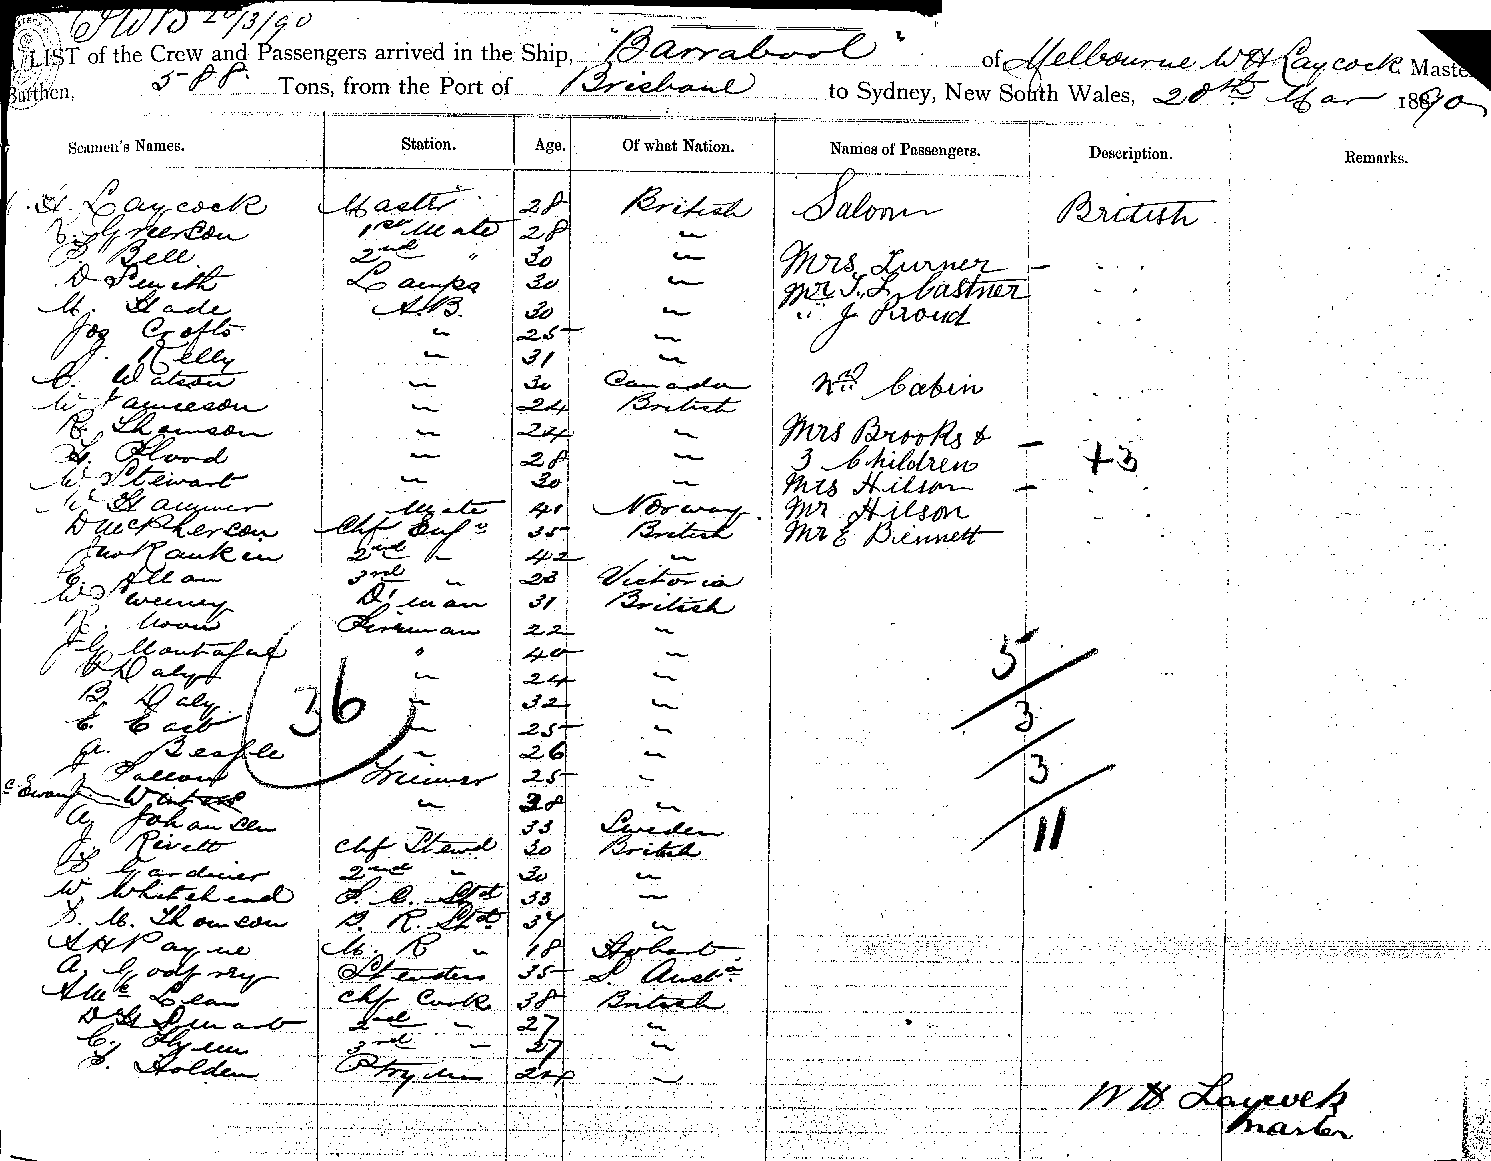 20/3/90
LIST of the Crew and Passengers arrived in the Ship, "Barrabool" of Melbourne W H Laycock Master
Burthen, 588 Tons, from the Port of Brisbane to Sydney, New South Wales, 20th Mar 1890
Seamen's Names. Station. Age. Of what Nation. Names of Passengers. Description. Remarks.
H. Laycock Master 28 British Saloon British
Grierson 1st Mate 28 "
Bell 2nd " 30 " Mrs Turner -
D Smith Lamps 30 " Mr T. L. Castner
M. Slade A.B. 30 " " J Proud
Jos Crofts " 25 "
J. Kelly " 31 "
C. Watson " 30 Canada 2nd Cabin
W Jamieson " 24 British
R. Thomson " 24 " Mrs Brooks & -
H. Flood " 28 " 3 Children +3
W Stewart " 30 " Mrs Hilson -
Mate 41 Norway. Mr Hilson
D McPherson Chf Engr 35 British Mr E Bennett
Jno Rankin 2nd " 42 "
E. Allan 3rd " 23 Victoria
W Sweeney D'man 31 British
R. Fireman 22 " 5
J G " 40 "
P Daly " 24 "
B. Daly " 32 " 3
36
E. East " 25 "
A. Beagle " 26 " 3
J Fallon Trimmer 25 "
Winters " 28 "
A. Johansen 33 Sweden 11
J. Rivett Chf Stewd 30 British
Gardiner 2nd " 30 "
W. Whitehead F. C. Std 33 "
S. M. Thomson B. R. Std 37 "
A H Payne M. R " 18 Hobart
A. Godfrey Stewdess 35 S. Austa.
A Mc Lean Chf Cook 38 British
D H Smart 2nd " 27 "
C. Flynn 3rd " 27 "
Holden Ptryman 24 "
W H Laycock
Master